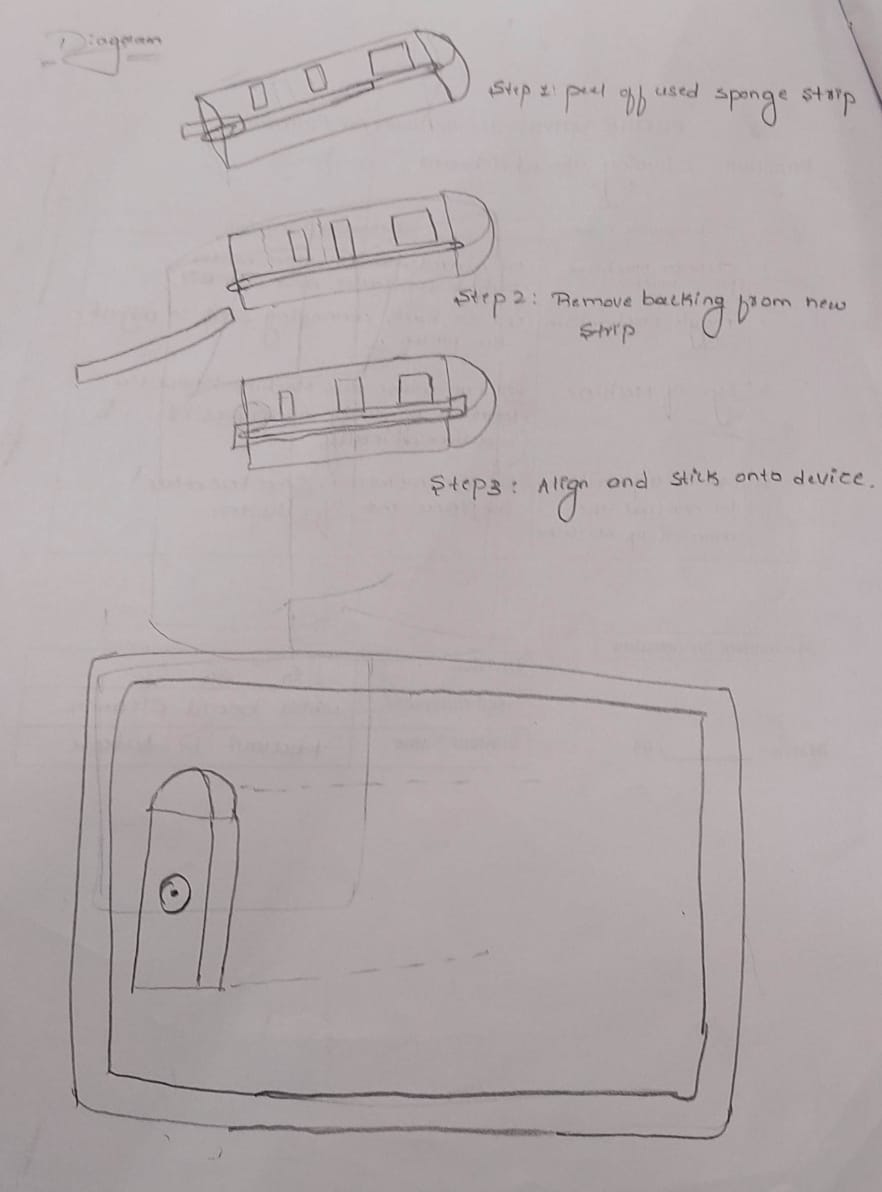 Diagram
Step 1: peel off used sponge strip
Step 2: Remove backing from new
strip
Step3: Align and stick onto device.